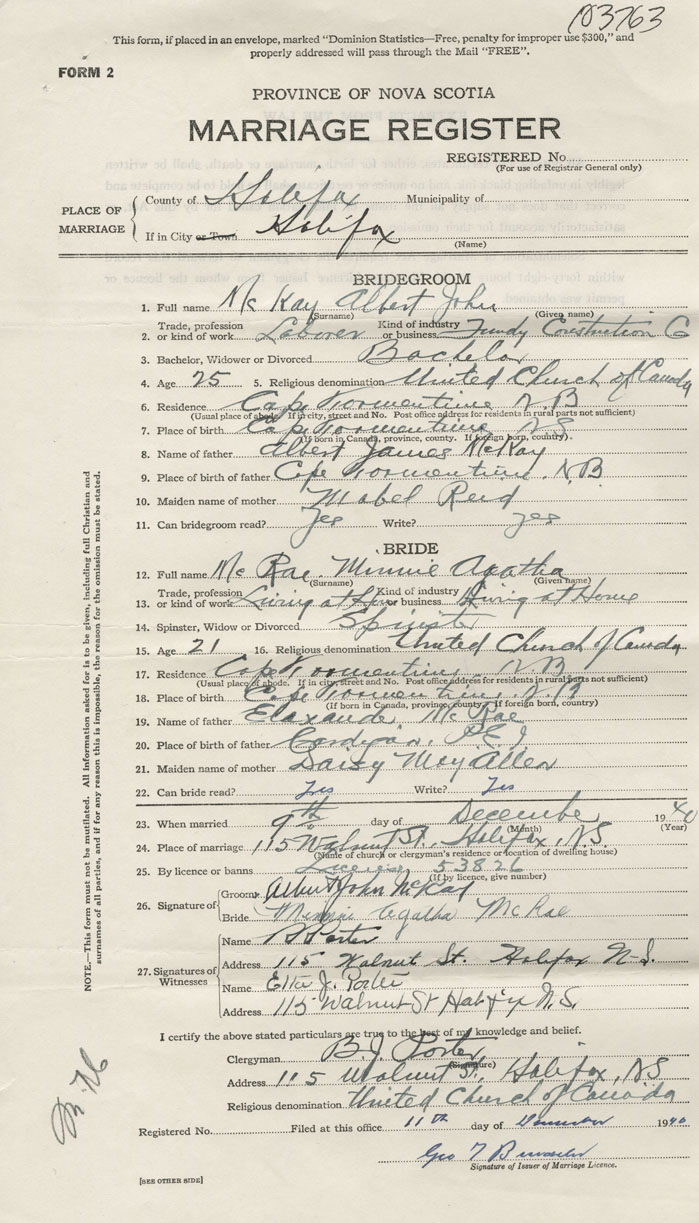 103763
This form, if placed in an envelope, marked "Dominion Statistics—Free, penalty for improper use $300," and
properly addressed will pass through the Mail "FREE".
FORM 2
PROVINCE OF NOVA SCOTIA
MARRIAGE REGISTER
REGISTERED No.
(For use of Registrar General only)
PLACE OF MARRIAGE
County of Halifax Municipality of
If in City or Town Halifax
(Name)
BRIDEGROOM
1. Full name McKay Albert John
(Surname) (Given name)
2. Trade, profession or kind of work Laborer Kind of industry or business Fundy Construction Co
3. Bachelor, Widower or Divorced Bachelor
4. Age 25 5. Religious denomination United Church of Canada
6. Residence Cape Tormentine N.B
(Usual place of abode. If in city, street and No. Post office address for residents in rural parts not sufficient)
7. Place of birth Cape Tormentine NS
(If born in Canada, province, county. If foreign born, country).
8. Name of father Albert James McKay
9. Place of birth of father Cape Tormentine, N.B
10. Maiden name of mother Mabel Reid
11. Can bridegroom read? yes Write? yes
BRIDE
12. Full name McRae, Minnie Agatha
(Surname) (Given name)
13. Trade, profession or kind of work Living at Home Kind of industry or business Living at Home
14. Spinster, Widow or Divorced Spinster
15. Age 21 16. Religious denomination United Church of Canada
17. Residence Cape Tormentine N.B
(Usual place of abode. If in city, street and No. Post office address for residents in rural parts not sufficient)
18. Place of birth Cape Tormentine, N.B
(If born in Canada, province, county. If foreign born, country)
19. Name of father McRae
20. Place of birth of father Cardigan, P.E.I
21. Maiden name of mother Daisy May Allen
22. Can bride read? Yes Write? Yes
23. When married 9th day of December 1940
(Month) (Year)
24. Place of marriage 115 Walnut St. Halifax, N.S.
(Name of church or clergyman's residence or location of dwelling house)
25. By licence or banns License 53826
(If by licence, give number)
26. Signature of
Groom Albert John McKay
Bride Minnie Agatha McRae
27. Signatures of Witnesses
Name Porter
Address 115 Walnut St. Halifax N-S.
Name J. Porter
Address 115 Walnut St Halifax N.S.
I certify the above stated particulars are true to the best of my knowledge and belief.
Clergyman B.J. Porter
(Signature)
Address 115 Walnut St. Halifax, NS
Religious denomination United Church of Canada
Registered No. Filed at this office 11th day of December 1940
Geo
Signature of Issuer of Marriage Licence.
[SEE OTHER SIDE]
NOTE.—This form must not be mutilated. All information asked for is to be given, including full Christian and
surnames of all parties, and if for any reason this is impossible, the reason for the omission must be stated.